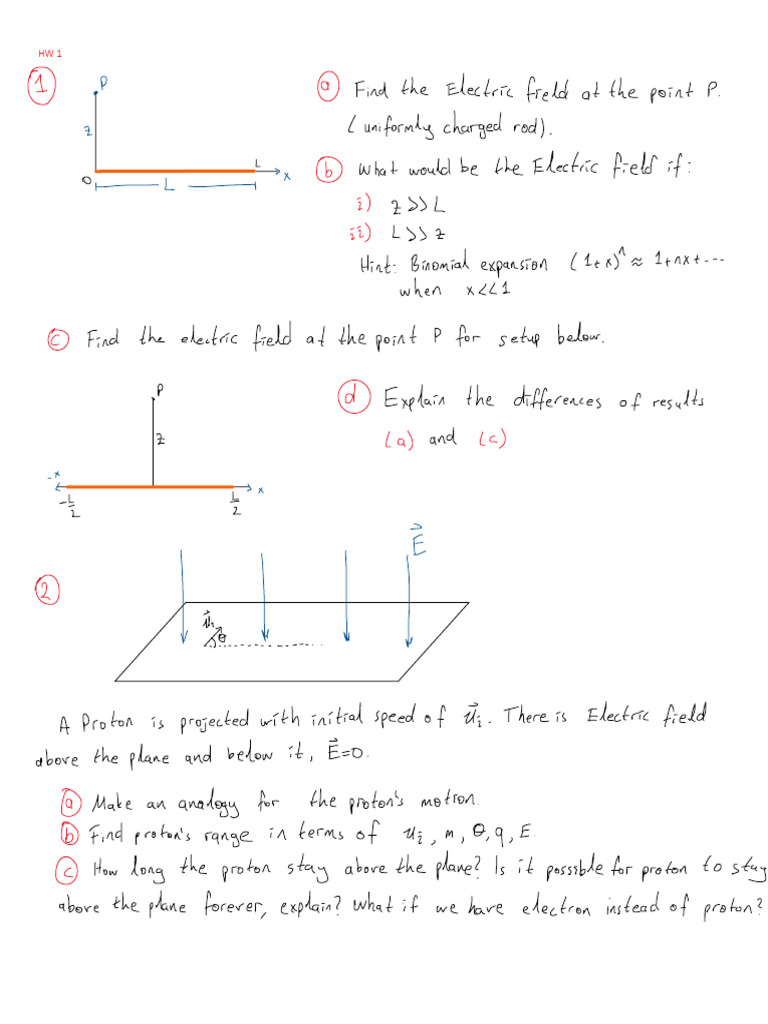 HW 1
1
P
z
O
L
x
L
a Find the Electric field at the point P.
(uniformly charged rod).
b What would be the Electric field if:
i) z >> L
ii) L >> z
Hint: Binomial expansion (1+x)^n ≈ 1+nx+---
when x<<1
c Find the electric field at the point P for setup below.
P
z
-x
x
-L/2
L/2
d Explain the differences of results
(a) and (c)
2
E⃗
u⃗i
θ
A Proton is projected with initial speed of u⃗i. There is Electric field
above the plane and below it, E⃗=0.
a Make an analogy for the proton's motion.
b Find proton's range in terms of ui, m, θ, q, E.
c How long the proton stay above the plane? Is it possible for proton to stay
above the plane forever, explain? What if we have electron instead of proton?